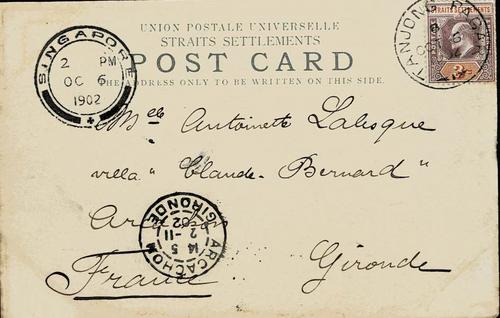 UNION POSTALE UNIVERSELLE
STRAITS SETTLEMENTS
POST CARD
THE ADDRESS ONLY TO BE WRITTEN ON THIS SIDE.
SINGAPORE
2 PM
OC 6
1902
TANJONG
STRAITS SETTLEMENTS
Melle Antoinette Lalesque
villa "Claude-Bernard"
France Gironde
ARCACHON
14 5
2 -11
02
GIRONDE